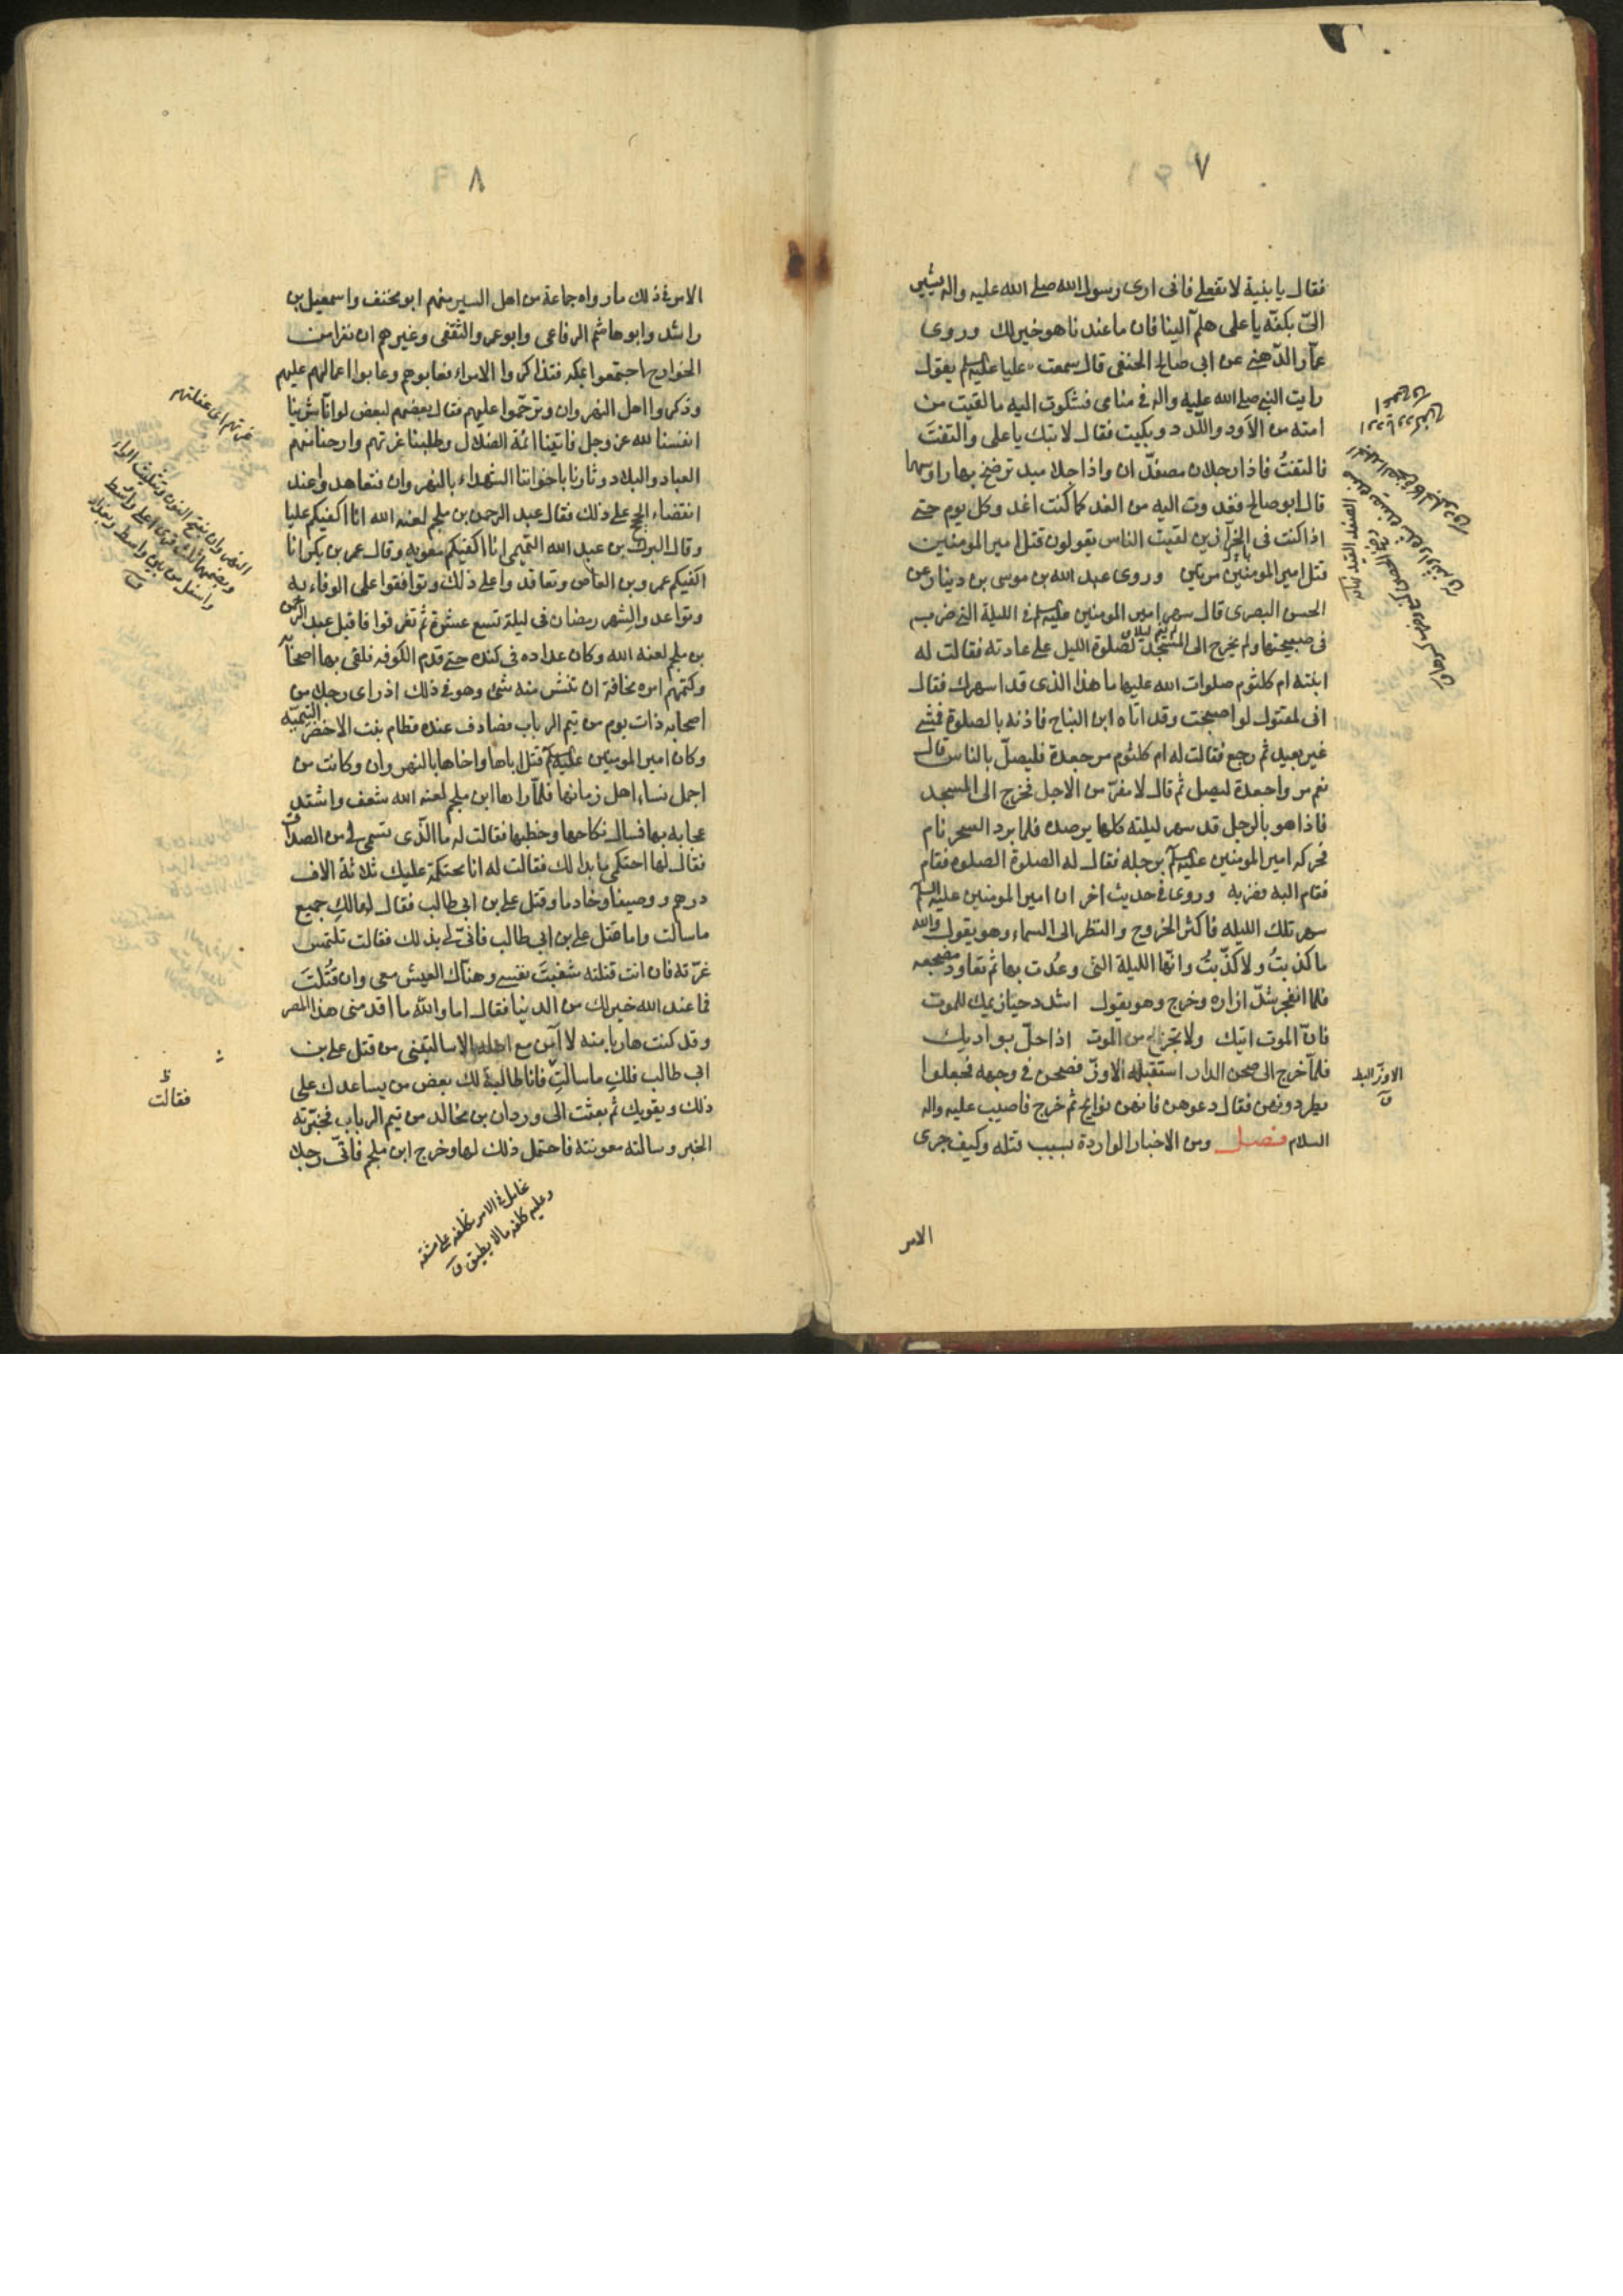 ٧
فقال يا بنية لا تفعلى فانى ارى رسول الله صلى الله عليه واله يشير
الىّ بكفّه يا على هلمّ الينا فان ما عندنا هو خير لك وروى
عمار الدهنى عن ابى صالح الحنفى قال سمعت عليا عليه السلم يقول
رايت النبى صلى الله عليه واله فى منامى فشكوت اليه ما لقيت من
امته من الاَود واللّدد وبكيت فقال لا تبك يا على والتفتَ
فالتفتُ فاذا رجلان مصفدان واذا جلاميد ترضخ بها رؤسهما
قال ابو صالح فغدوت اليه من الغد كما كنت اغدو كل يوم حتى
اذا كنت فى الجزّارين لقيت الناس يقولون قتل امير المومنين
قتل امير المومنين وروى عبد الله بن موسى بن دينار عن
الحسن البصرى قال سهر امير المومنين عليه السلم فى الليلة التى ضرب
فى صبيحتها ولم يخرج الى المسجد لصلوة الليل على عادته فقالت له
ابنته ام كلثوم صلوات الله عليها ما هذا الذى قد اسهرك فقال
انى لمقتول لو اصبحت وقد اتاه ابن النباح فاذنه بالصلوة فمشى
غير بعيد ثم رجع فقالت له ام كلثوم مر جعدة فليصلّ بالناس قال
نعم مروا جعدة ليصل ثم قال لا مفرّ من الاجل فخرج الى المسجد
فاذا هو بالرجل قد سهر ليلته كلها يرصده فلما برد السحر نام
فحركه امير المومنين عليه السلم برجله فقال له الصلوة الصلوة فقام
فقام اليه فضربه وروى فى حديث اخر ان امير المومنين عليه السلم
سهر تلك الليله فاكثر الخروج والنظر الى السماء وهو يقول والله
ما كذبتُ ولا كذّبتُ وانّها الليلة التى وعُدت بها ثم يعاود مضجعه
فلما انفجر شدّ ازاره وخرج وهو يقول اشدد حيازيمك للموت
فانّ الموت اتيك ولا تجزع من الموت اذا حلّ بواديك
فلمّا خرج الى صحن الدار استقبله الاوزّ فصحن فى وجهه فجعلوا
يطردونهن فقال دعوهن فانهن نوائح ثم خرج فاصيب عليه واله
السلام فصل ومن الاخبار الواردة بسبب قتله وكيف جرى
الاوزّ البط
ق
الامر
٨
الامر فى ذلك ما رواه جماعة من اهل السير منهم ابو مخنف واسمعيل بن
راشد وابو هاشم الرفاعى وابو عمرو الثقفى وغيرهم ان نفرا من
الخوارج اجتمعوا بمكه فتذاكروا الامراء فعابوهم وعابوا اعمالهم عليهم
وذكروا اهل النهروان وترحّموا عليهم فقال بعضهم لبعض لو انّا شرينا
انفسنا لله عز وجل فاتينا ائمة الضلال وطلبنا غرتهم وارحنا منهم
العباد والبلاد وثارنا باخواننا الشهداء بالنهروان فتعاهدوا عند
انقضاء الحج على ذلك فقال عبد الرحمن بن ملجم لعنه الله انا اكفيكم عليا
وقال البرك بن عبد الله التميمى انا اكفيكم معويه وقال عمر بن بكر انا
اكفيكم عمرو بن العاص وتعاقدوا على ذلك وتوافقوا على الوفاء به
وتواعدوا لشهر رمضان فى ليلة تسع عشرة ثم تفرقوا فاقبل عبد الرحمن
بن ملجم لعنه الله وكان عداده فى كنده حتى قدم الكوفه فلقى بها اصحابه
وكتمهم امره مخافة ان ينتشر منه شئ وهو فى ذلك اذ راى رجلا من
اصحابه ذات يوم من تيم الرباب فصادف عنده قطام بنت الاخضر التيميّه
وكان امير المومنين عليه السلم قتل اباها واخاها بالنهروان وكانت من
اجمل نساء اهل زمانها فلمّا راها ابن ملجم لعنه الله شعف واشتد
عجابه بها فسال نكاحها وخطبها فقالت له ما الذّى تسمى لى من الصداق
فقال لها احتكمى ما بدا لك فقالت له انا محتكمة عليك ثلاثة الاف
درهم ووصيفا وخادما وقتل على بن ابى طالب فقال لها لكِ جميع
ما سالت واما قتل على بن ابى طالب فانّى لى بذلك فقالت تلتمس
غرّته فان انت قتلته شفيتَ نفسى وهناك العيش معى وان قُتلتَ
فما عند الله خير لك من الدنيا فقال اما والله ما اقدمنى هذا المصر
وقد كنت هاربا منه لا آمن مع اهله الا ما سالتنى من قتل على بن
ابى طالب فلكِ ما سالتِ فانا طالبة لك بعض من يساعدك على
ذلك ويقويك ثم بعثت الى وردان بن مخالد من تيم الرباب فخبّرته
الخبر وسالته معونته فاحتمل ذلك لها وخرج ابن ملجم فاتى رجلا
غرتهم اى غفلتهم
النهروان بفتح النون وتثليث الراء
وبضمهما ثلث قرى اعلى واوسط
واسفل من بين واسط وبغداد
ق
ظ
فقالت
تحامل فى الامر تكلفه على مشقه
وعليه كلفه ما لا يطيق ق